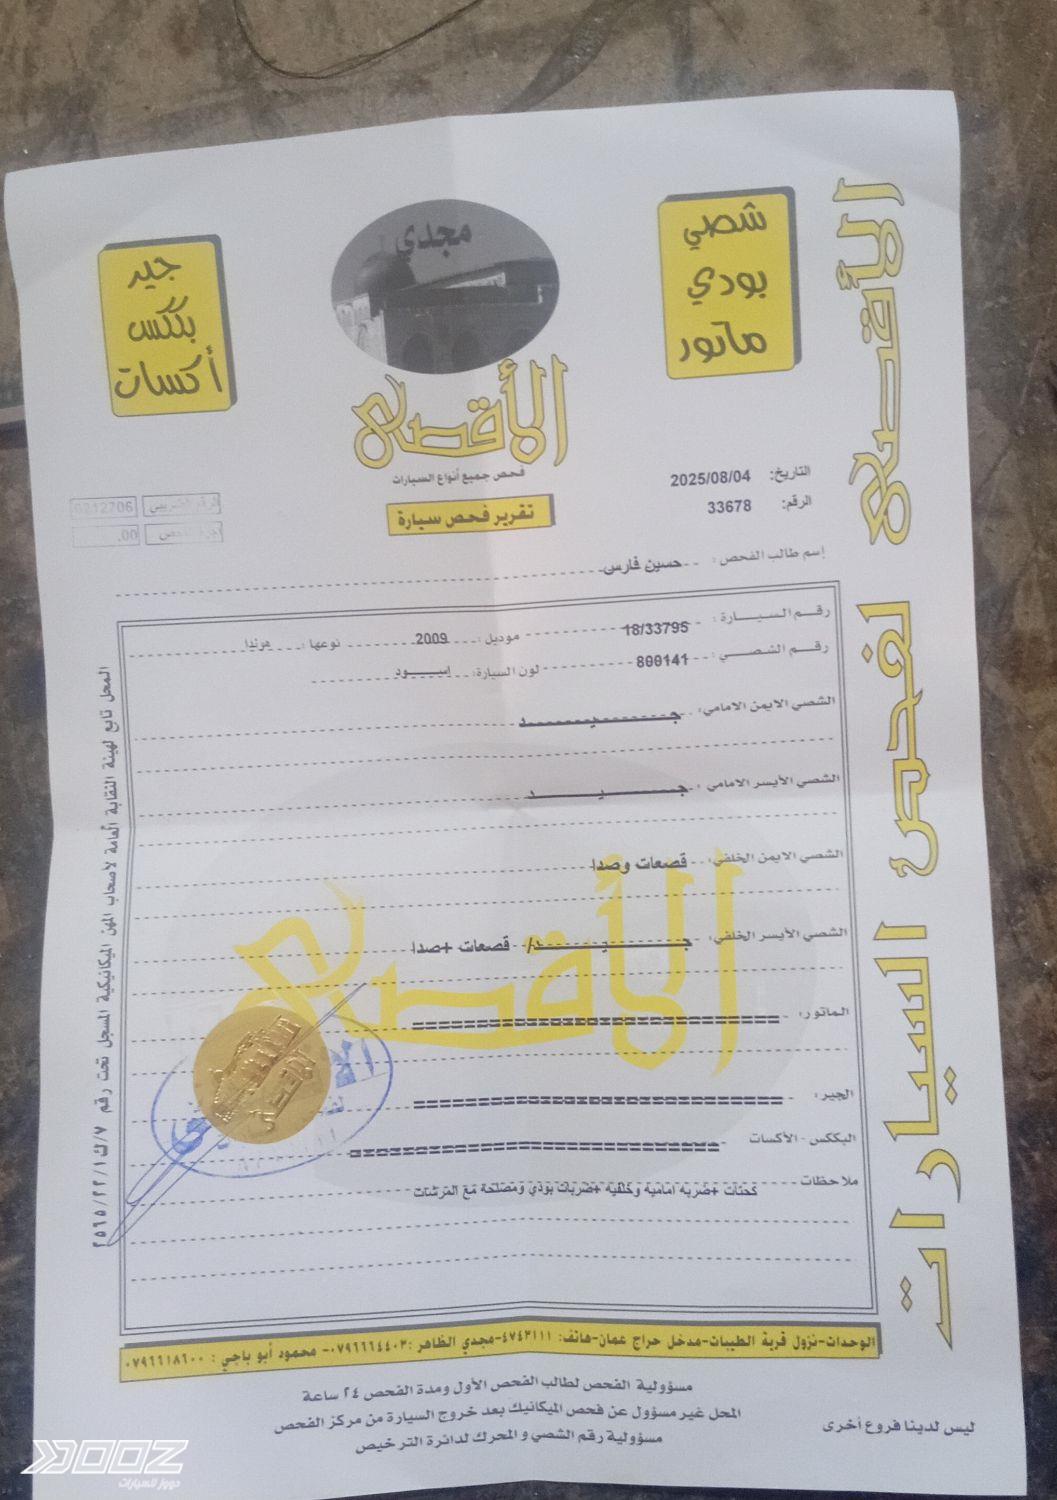 شصي
بودي
ماتور
مجدي
الأقصى
فحص جميع أنواع السيارات
تقرير فحص سيارة
جير
بككس
أكسات
التاريخ: 2025/08/04
الرقم: 33678
الرقم الضريبي 6212706
.00
إسم طالب الفحص: حسين فارس
رقم السيارة: 18/33795 موديل: 2009 نوعها: هوندا
رقم الشصي: 800141 لون السيارة: اسود
الشصي الايمن الامامي: جيد
الشصي الأيسر الامامي: جيد
الشصي الايمن الخلفي: قصعات وصدا
الشصي الأيسر الخلفي: جيد/ قصعات +صدا
الماتور: ==============================
الجير: ==============================
البككس - الأكسات ==============================
ملاحظات كحتات +ضربه امامية وخلفيه +ضربات بودي ومصلحة مع المرشات
الوحدات-نزول قرية الطيبات-مدخل حراج عمان-هاتف: ٤٧٤٣١١١-مجدي الظاهر: ٠٧٩٦٦٦٤٤٠٣- محمود أبو باجي: ٠٧٩٦٦١٨٦٠٠
مسؤولية الفحص لطالب الفحص الأول ومدة الفحص ٢٤ ساعة
المحل غير مسؤول عن فحص الميكانيك بعد خروج السيارة من مركز الفحص
مسؤولية رقم الشصي و المحرك لدائرة الترخيص
ليس لدينا فروع أخرى
الأقصى لفحص السيارات
المحل تابع لهيئة النقابة العامة لأصحاب المهن الميكانيكية المسجل تحت رقم ٧/ك/٢٥٦٥/٢٢/١
الأقصى
DOOZ
دووز للسيارات